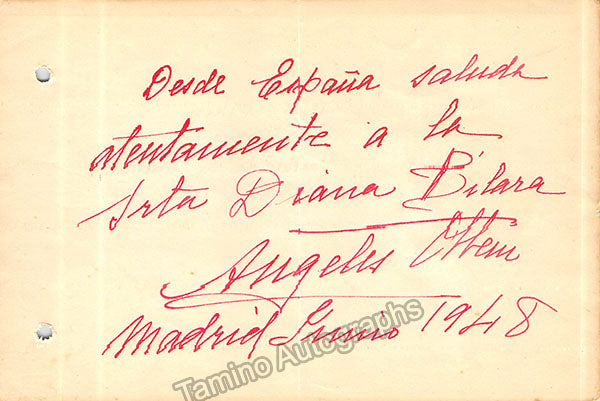 Desde España saluda
atentamente a la
Srta Diana Bilara
Angeles Ottein
Madrid Junio 1948
Tamino Autographs